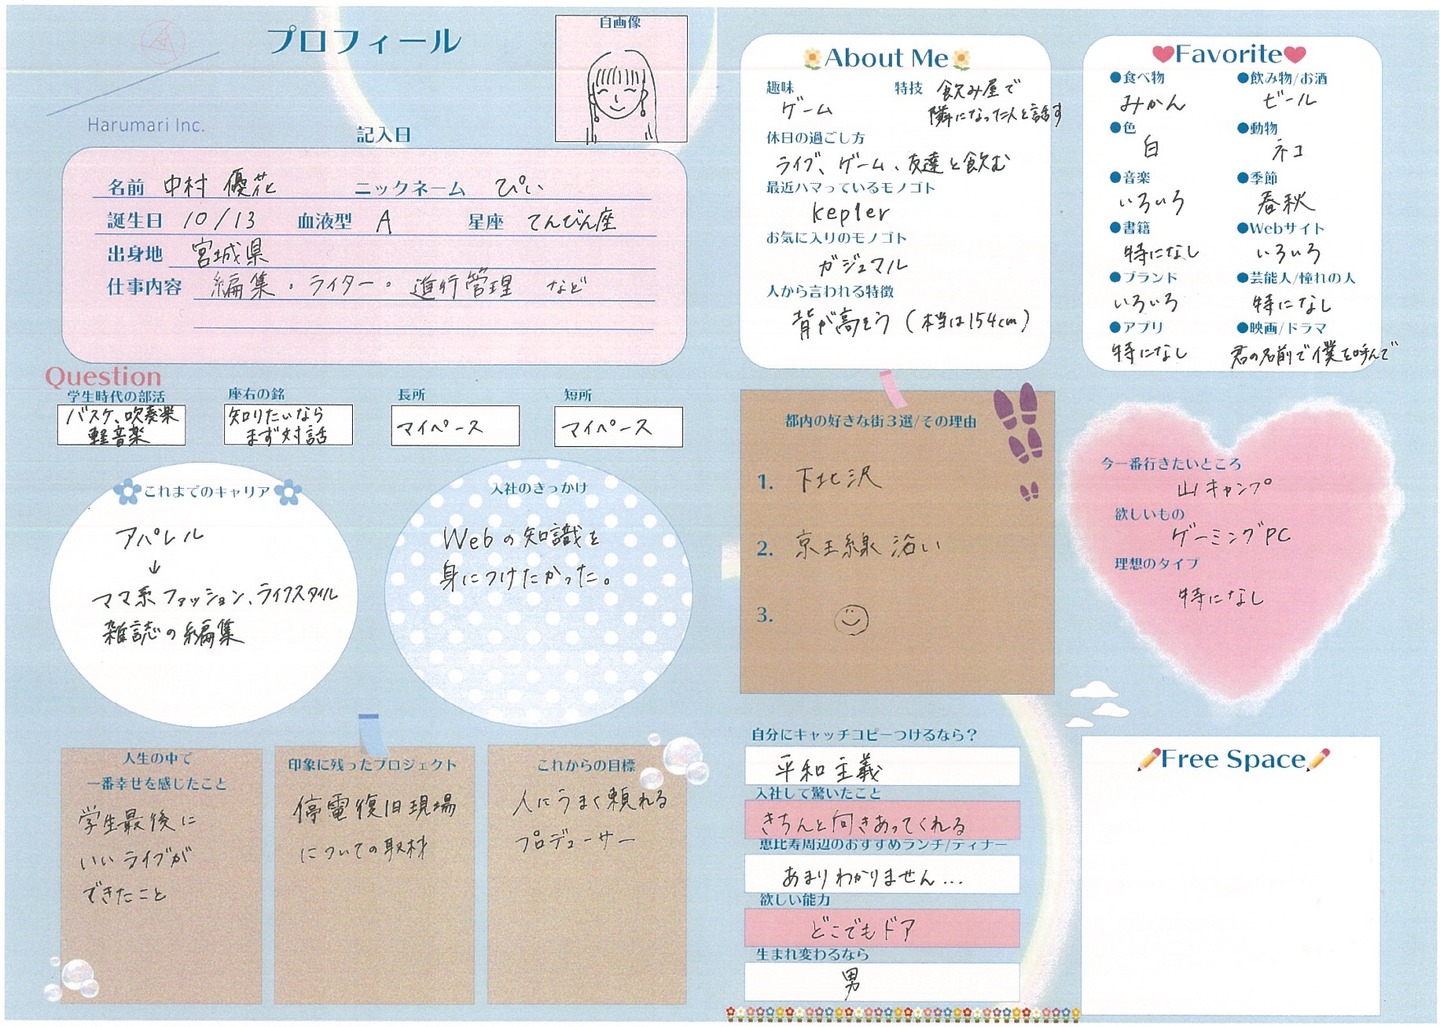 プロフィール
自画像
Harumari Inc.
記入日
名前 中村 優花 ニックネーム ぴぃ
誕生日 10/13 血液型 A 星座 てんびん座
出身地 宮城県
仕事内容 編集・ライター・進行管理 など
Question
学生時代の部活
バスケ、吹奏楽
軽音楽
座右の銘
知りたいなら
まず対話
長所
マイペース
短所
マイペース
これまでのキャリア
アパレル
↓
ママ系ファッション、ライフスタイル
雑誌の編集
入社のきっかけ
Webの知識を
身につけたかった。
人生の中で
一番幸せを感じたこと
学生最後に
いいライブが
できたこと
印象に残ったプロジェクト
停電復旧現場
についての取材
これからの目標
人にうまく頼れる
プロデューサー
About Me
趣味
ゲーム
特技 飲み屋で
隣になった人と話す
休日の過ごし方
ライブ、ゲーム、友達と飲む
最近ハマっているモノゴト
kepler
お気に入りのモノゴト
ガジュマル
人から言われる特徴
背が高そう (本当は154cm)
Favorite
●食べ物
みかん
●飲み物/お酒
ビール
●色
白
●動物
ネコ
●音楽
いろいろ
●季節
春秋
●書籍
特になし
●Webサイト
いろいろ
●ブランド
いろいろ
●芸能人/憧れの人
特になし
●アプリ
特になし
●映画/ドラマ
君の名前で僕を呼んで
都内の好きな街3選/その理由
1. 下北沢
2. 京王線沿い
3.
今一番行きたいところ
山キャンプ
欲しいもの
ゲーミングPC
理想のタイプ
特になし
自分にキャッチコピーつけるなら？
平和主義
入社して驚いたこと
きちんと向きあってくれる
恵比寿周辺のおすすめランチ/ディナー
あまりわかりません…
欲しい能力
どこでもドア
生まれ変わるなら
男
Free Space